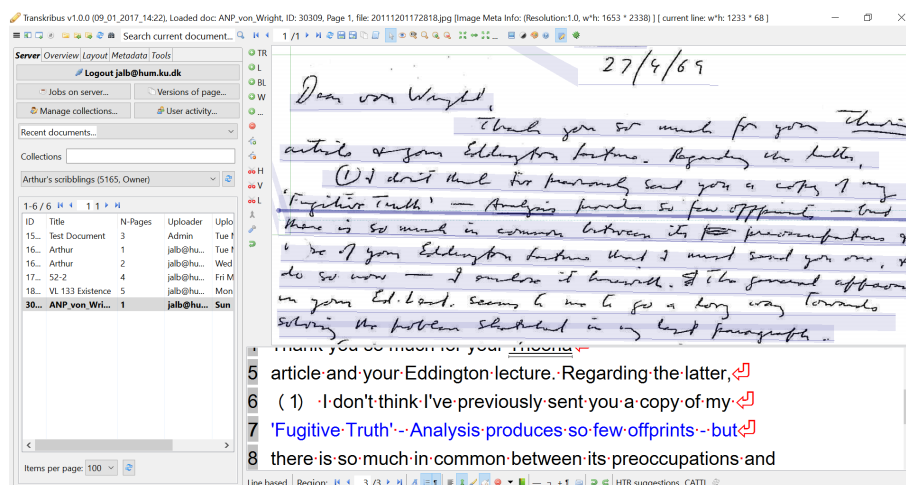 Transkribus v1.0.0 (09_01_2017_14:22), Loaded doc: ANP_von_Wright, ID: 30309, Page 1, file: 20111201172818.jpg [Image Meta Info: (Resolution:1.0, w*h: 1653 * 2338) ] [ current line: w*h: 1233 * 68 ]
Search current document...
1 /1
Server Overview Layout Metadata Tools
Logout jalb@hum.ku.dk
Jobs on server... Versions of page...
Manage collections... User activity...
Recent documents...
Collections
Arthur's scribblings (5165, Owner)
1-6 / 6 1 1
ID Title N-Pages Uploader Uplo
15... Test Document 3 Admin Tue
16... Arthur 1 jalb@hu... Tue
16... Arthur 2 jalb@hu... Wed
17... 52-2 4 jalb@hu... Fri M
18... VL 133 Existence 5 jalb@hu... Mon
30... ANP_von_Wri... 1 jalb@hu... Sun
Items per page: 100
TR
L
BL
W
...
H
V
L
27/4/69
Dear von Wright,
Thank you so much for your
article & your Eddington lecture. Regarding the latter,
(1) I don't think I've previously sent you a copy of my
'Fugitive Truth' — Analysis produces so few offprints — but
there is so much in common between its preoccupations &
of your Eddington lecture that I must send you one, &
do so now — I enclose it herewith. The general approach
in your Ed. Lect. seems to me to go a long way towards
solving the problem sketched in my last paragraph.
4 Thank you so much for your Theoria
5 article and your Eddington lecture. Regarding the latter,
6 (1) I don't think I've previously sent you a copy of my
7 'Fugitive Truth' - Analysis produces so few offprints - but
8 there is so much in common between its preoccupations and
Line based Region: 3 /3 HTR suggestions CATTI